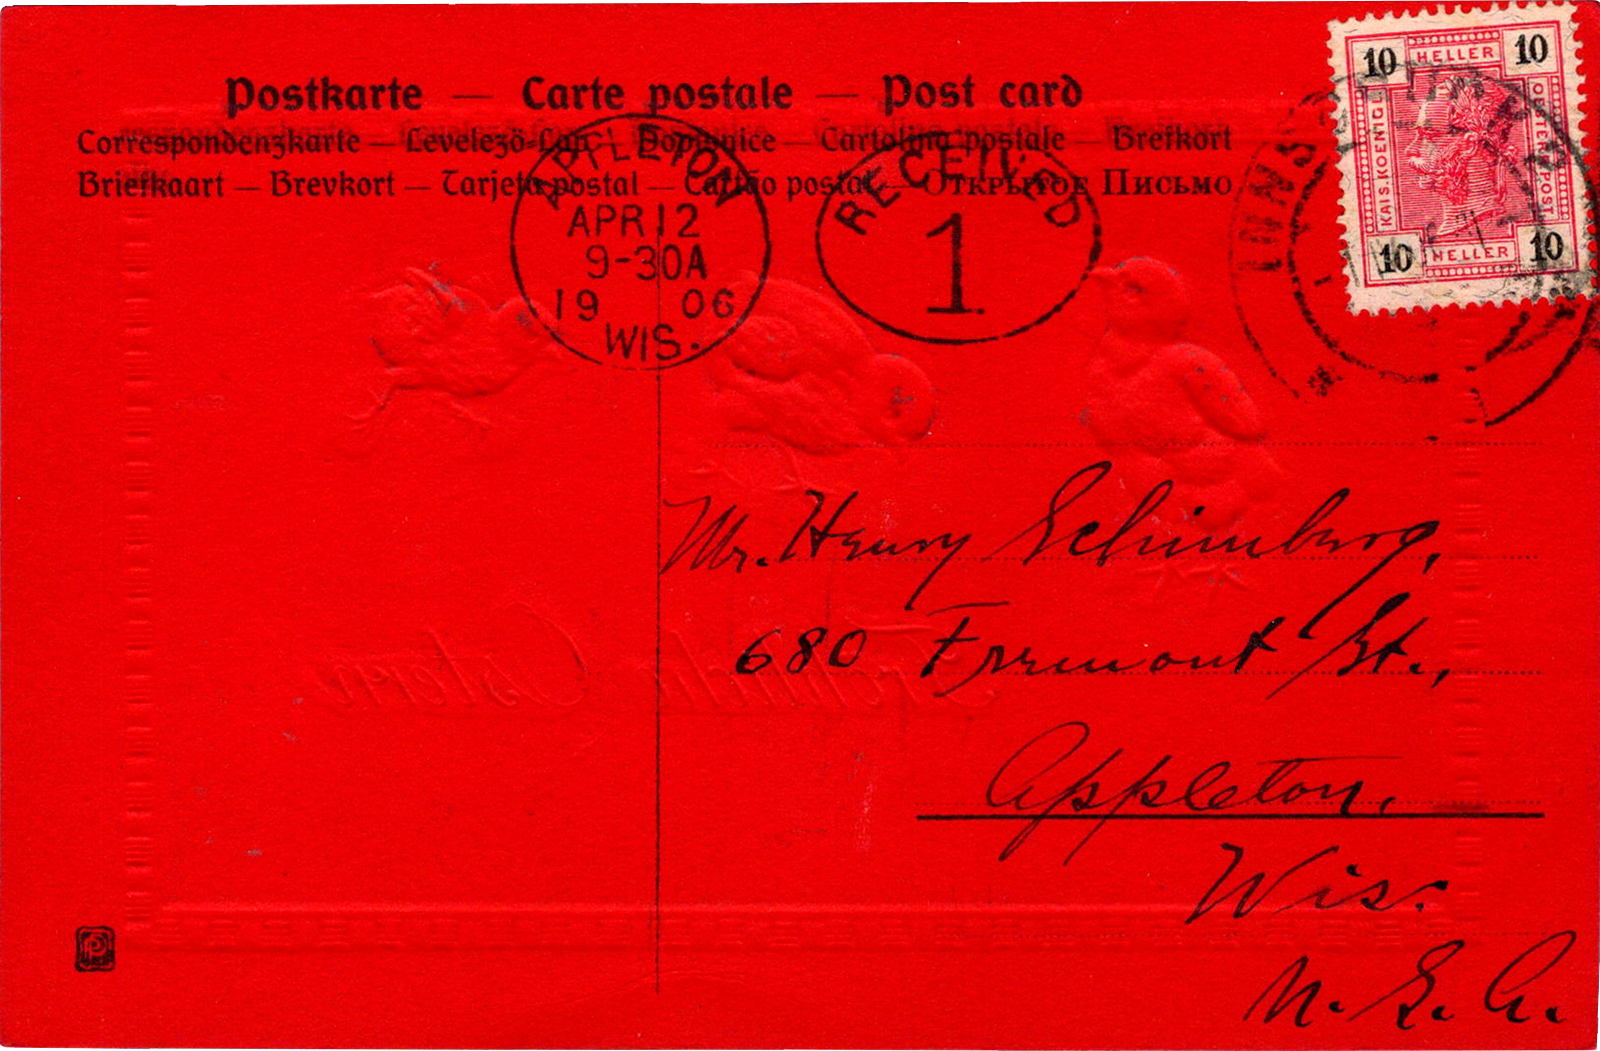 Postkarte — Carte postale — Post card
Correspondenzkarte — Levelező-Lap — Dopisnice — Cartolina postale — Brefkort
Briefkaart — Brevkort — Tarjeta postal — Cartão postal — Открытое Письмо
APPLETON
APR 12
9-30A
19 06
WIS.
RECEIVED
1
10 HELLER 10
KAIS. KOENIGL.
OESTERR. POST
10 HELLER 10
INNSBRUCK
Mr. Henry Schimberg,
680 Fremont St.,
Appleton,
Wis.
U.S.A.
Fröhliche Ostern